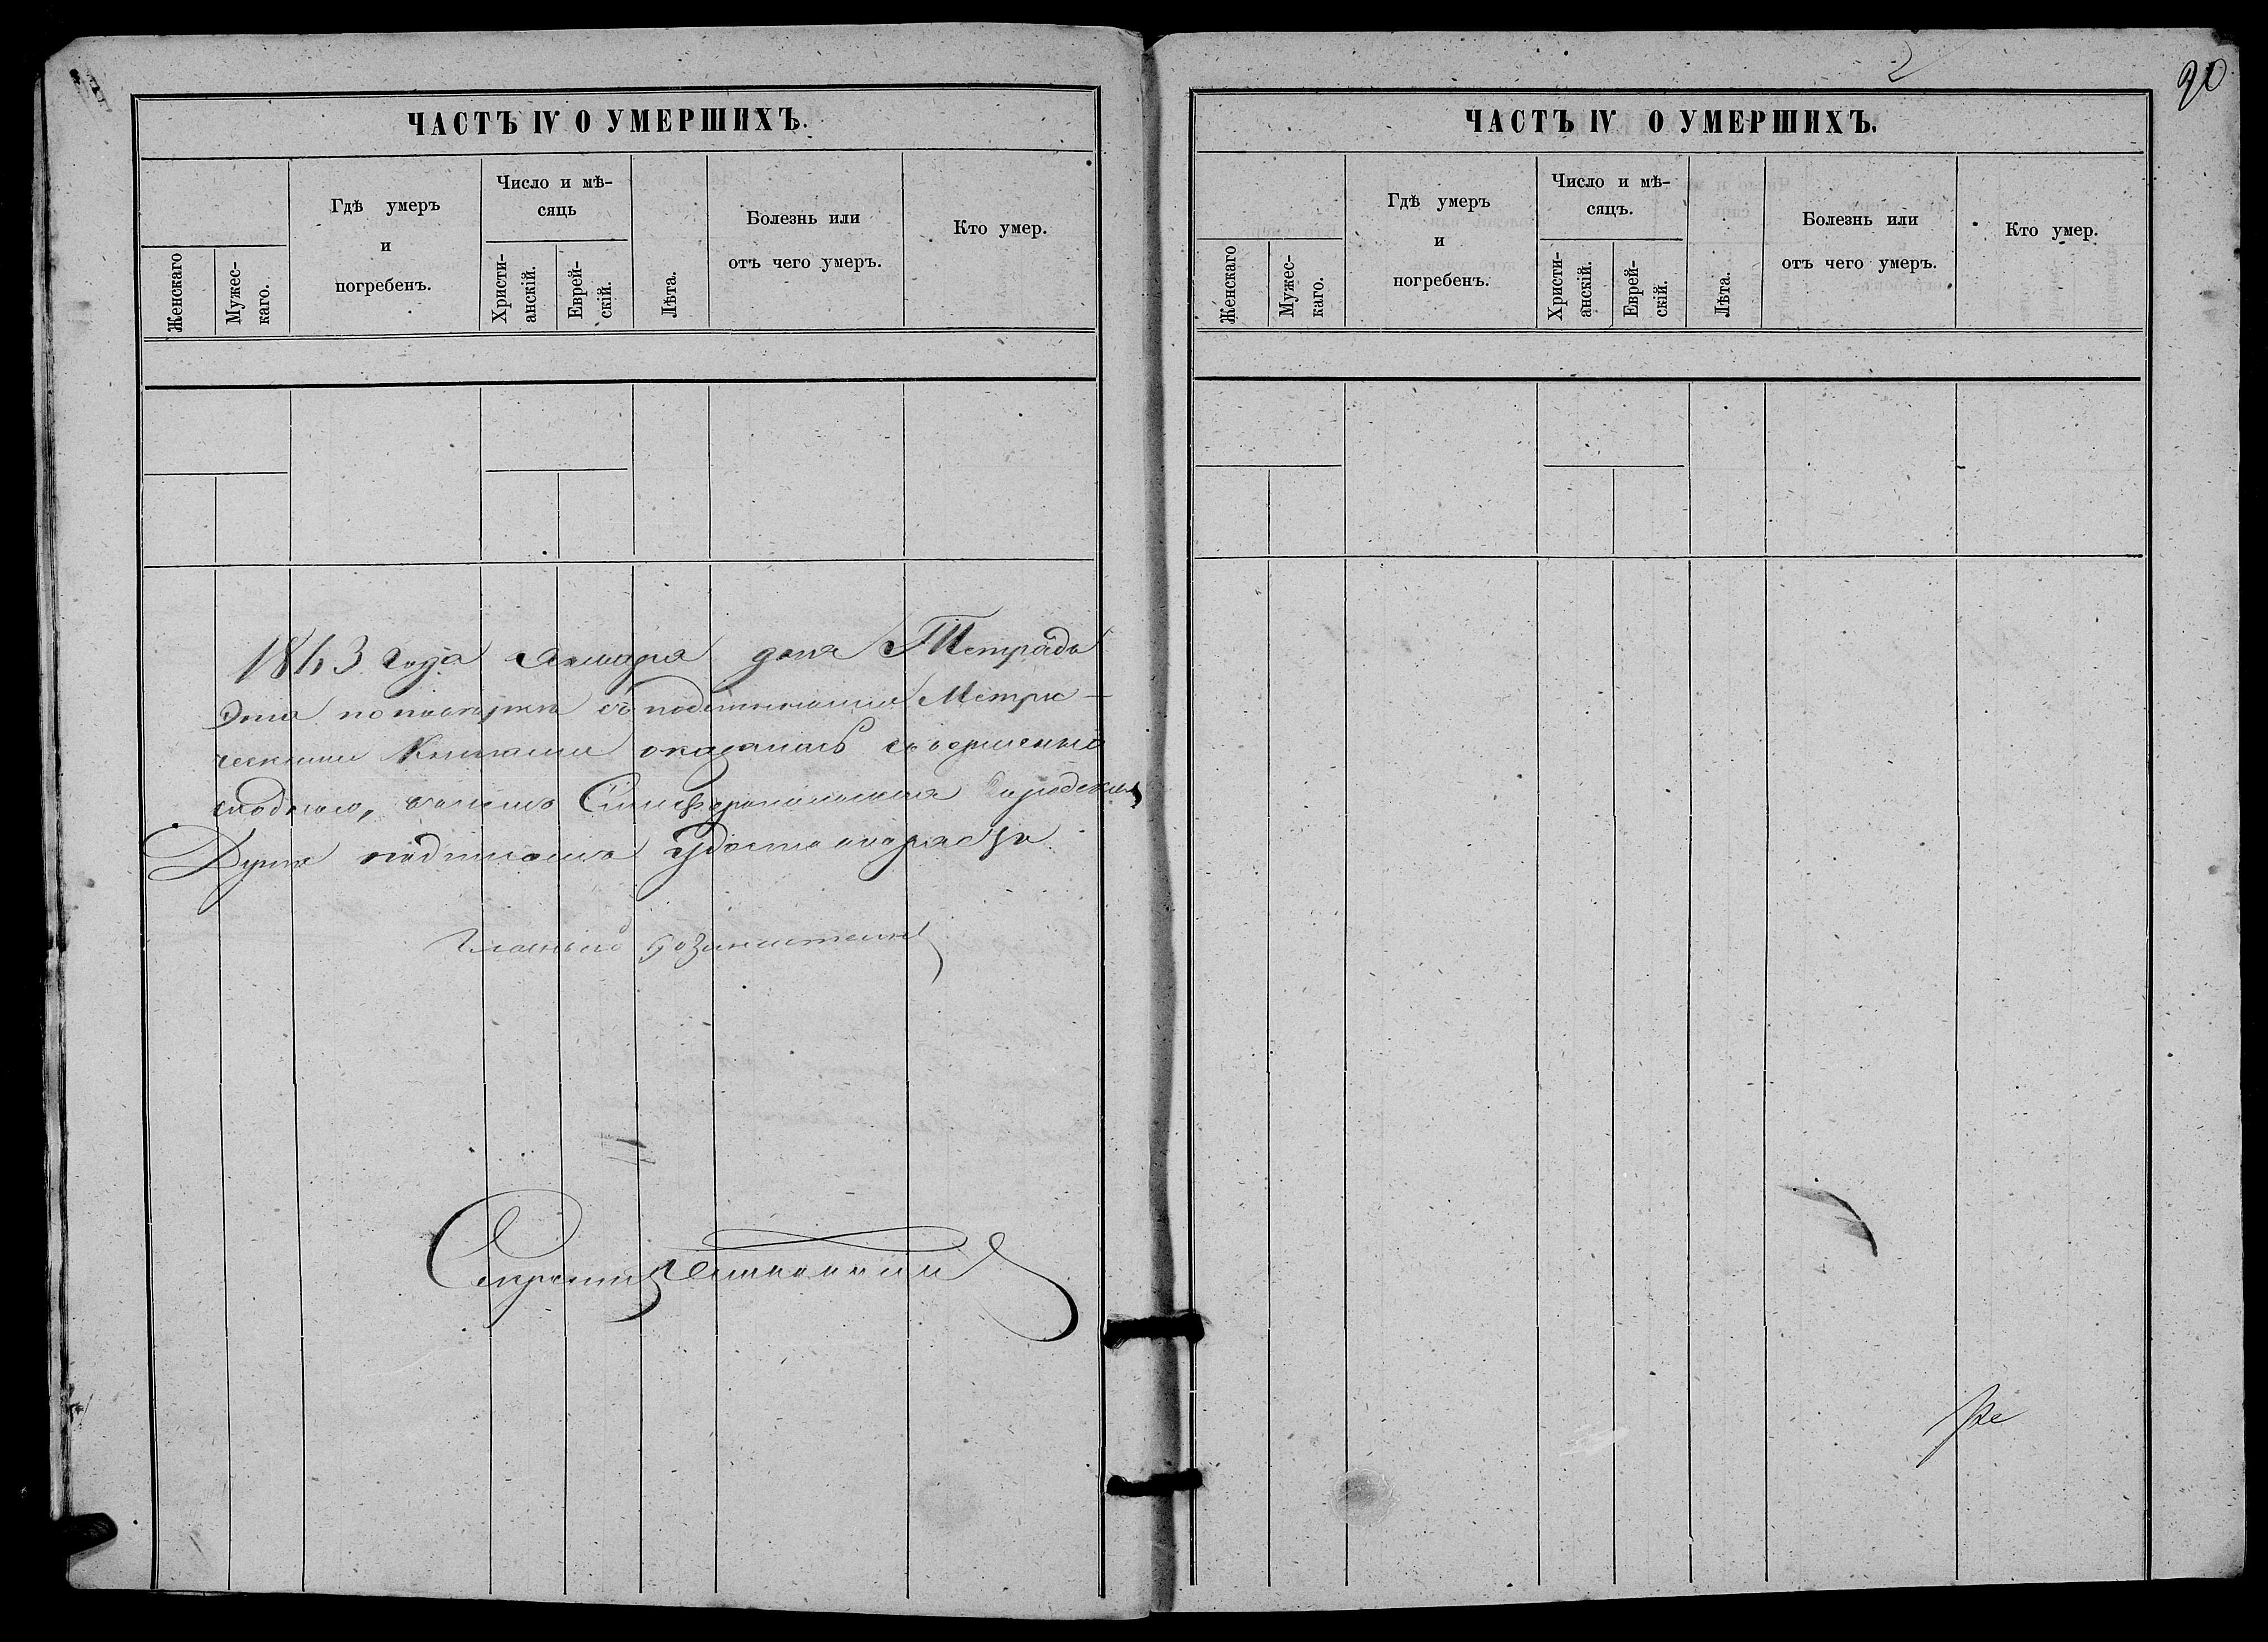 ЧАСТЬ IV О УМЕРШИХЪ.
Женскаго
Мужес-
каго.
Гдѣ умеръ
и
погребенъ.
Число и мѣ-
сяць
Христи-
анскій.
Еврей-
скій.
Лѣта.
Болезнь или
отъ чего умеръ.
Кто умер.
1863 года Января дня Тетрадь
эта по повѣркѣ съ подлинными Метри-
ческими Книгами оказалась совершенно
сходною, въ чемъ Симферопольская Городская
Дума подписомъ удостовѣряетъ
Гласный
Секретарь
ЧАСТЬ IV О УМЕРШИХЪ.
90
Женскаго
Мужес-
каго.
Гдѣ умеръ
и
погребенъ.
Число и мѣ-
сяцъ.
Христи-
анскій.
Еврей-
скій.
Лѣта.
Болезнь или
отъ чего умеръ.
Кто умер.